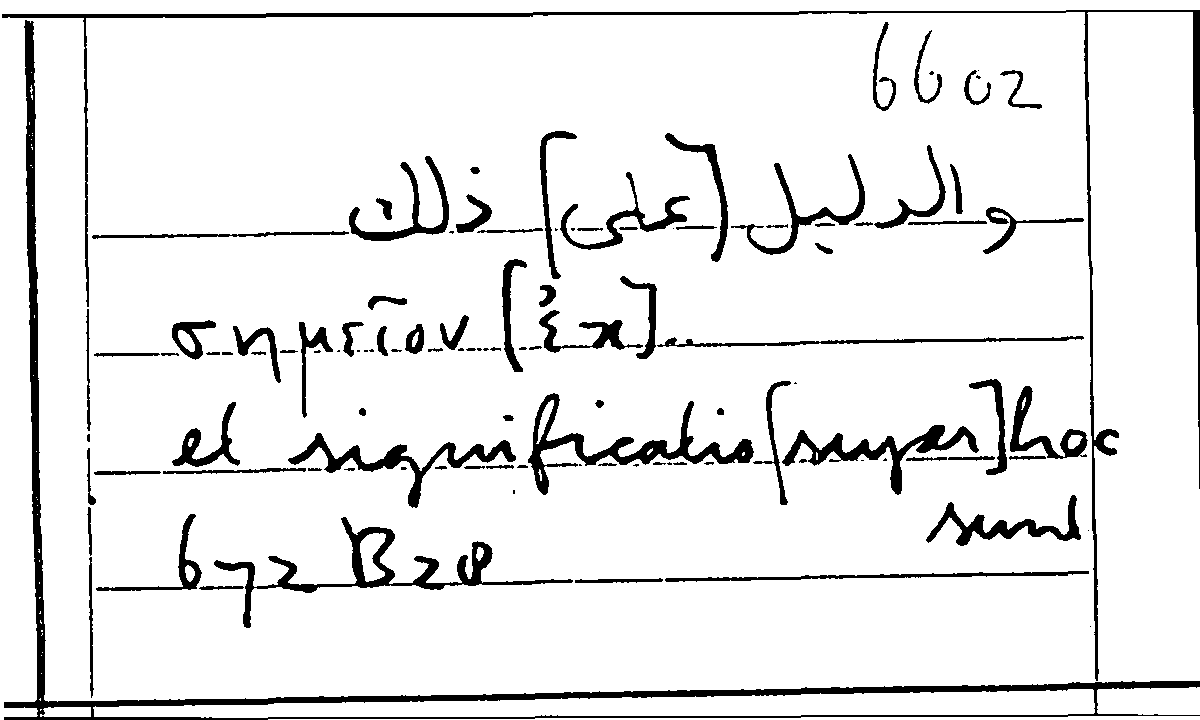 6602
والدليل [على] ذلك
σημεῖον [ἐκ]..
et significatio [super] hoc
sunt
672 B28